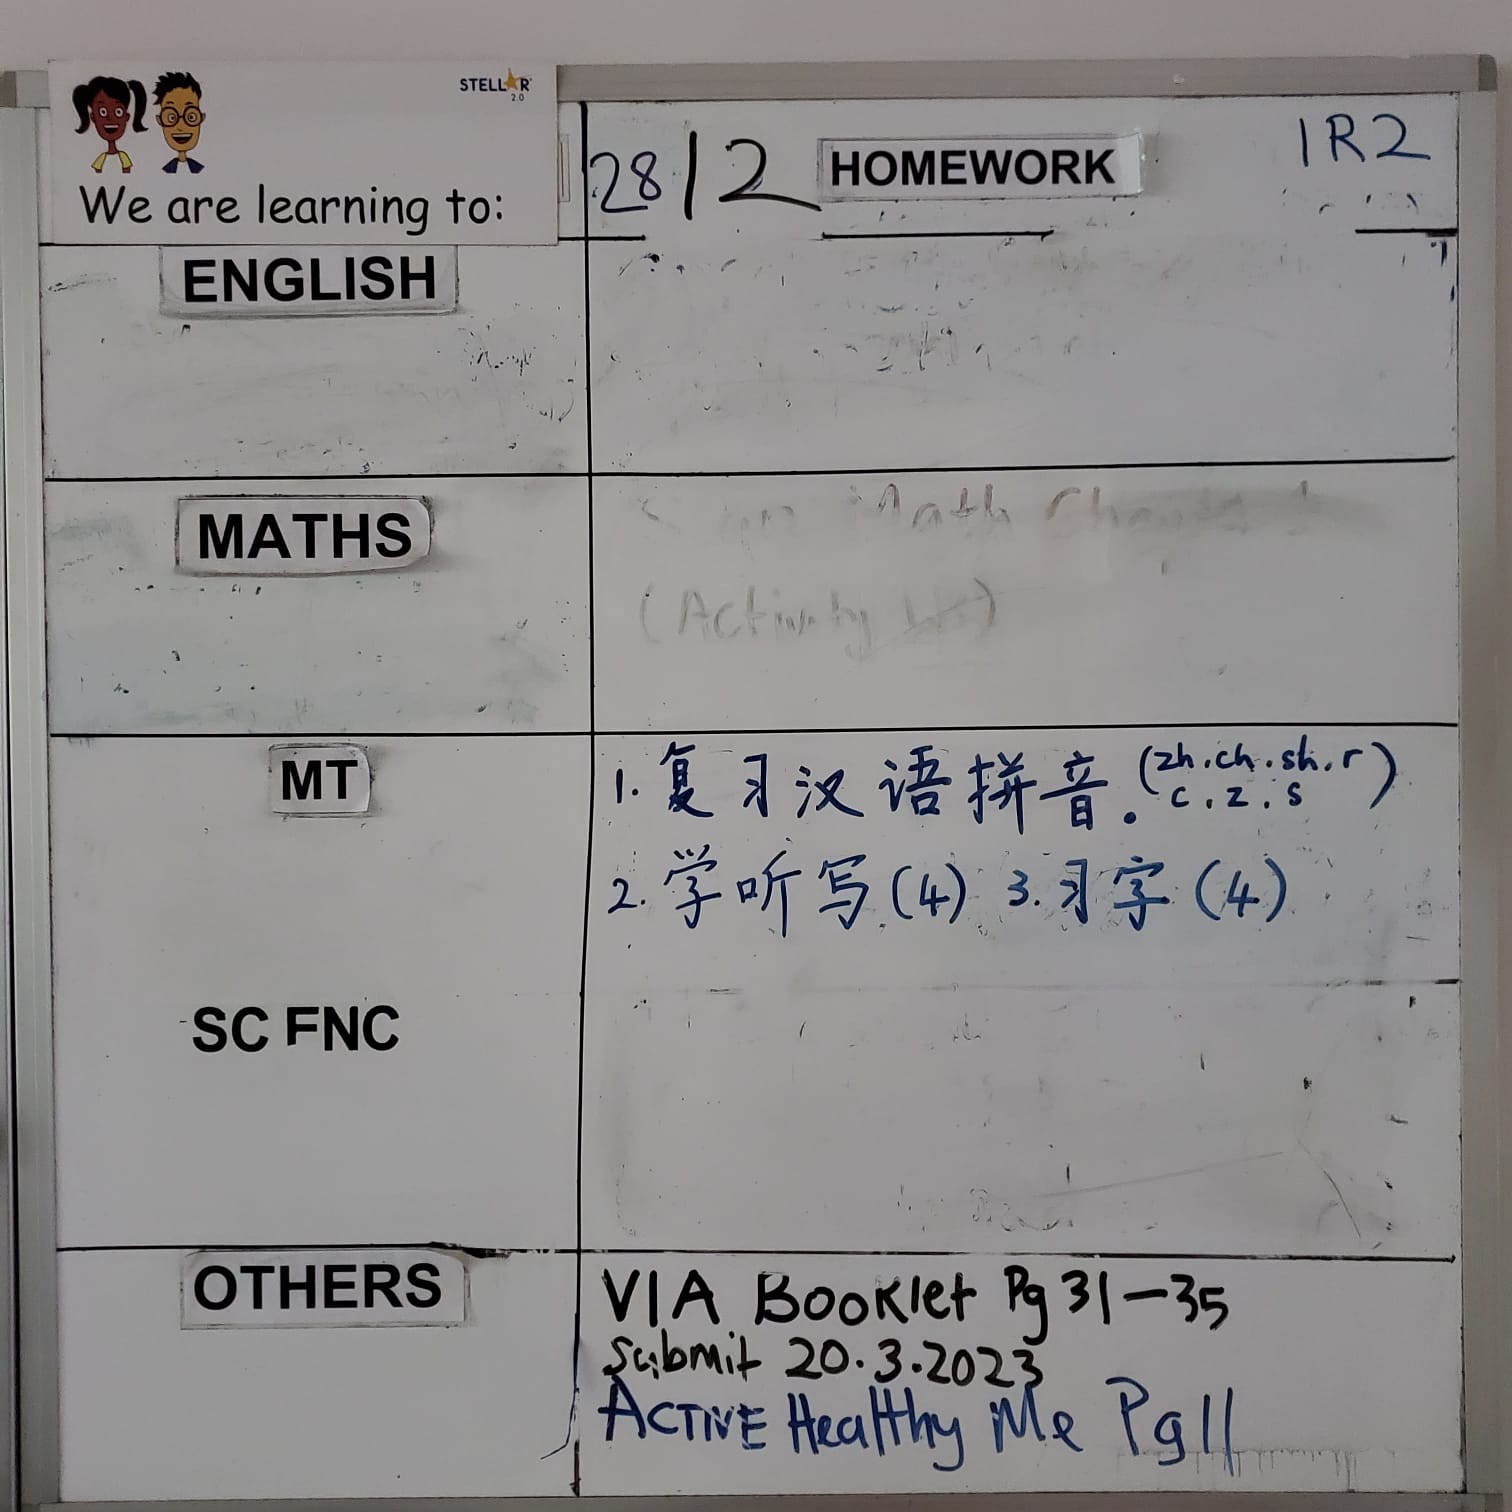 STELLAR 2.0
We are learning to:
28/2 HOMEWORK 1R2
ENGLISH
MATHS
Math
(Activity
MT
1. 复习汉语拼音。(zh.ch.sh.r
c.z.s)
2. 学听写(4) 3. 习字(4)
SC FNC
OTHERS
VIA Booklet Pg 31-35
Submit 20.3.2023
ACTIVE Healthy Me Pg 11